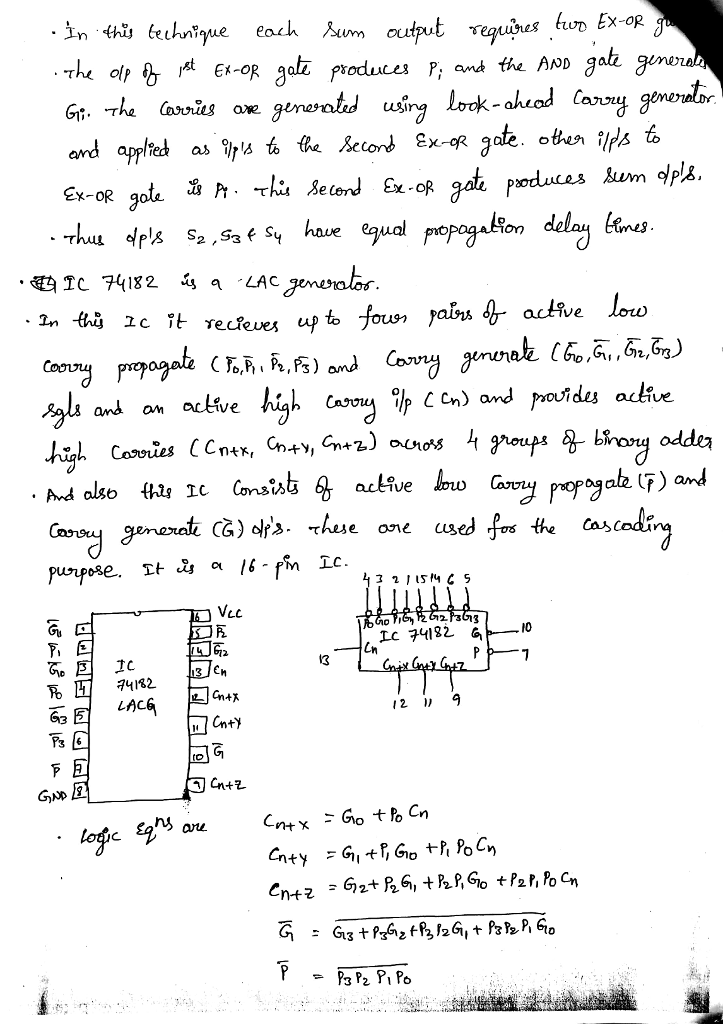 · In this technique each sum output requires two EX-OR
· The o/p of 1st EX-OR gate produces Pi and the AND gate generates
Gi. The Carries are generated using look-ahead Carry generator.
and applied as i/p's to the Second EX-OR gate. other i/p's to
EX-OR gate is Pi. This Second Ex-OR gate produces sum o/p's.
· Thus o/p's S2, S3 & S4 have equal propagation delay times.
· IC 74182 is a LAC generator.
· In this IC it recieves up to four pairs of active low
Carry propagate (P̅0, P̅1, P̅2, P̅3) and Carry generate (G̅0, G̅1, G̅2, G̅3)
sgls and an active high Carry i/p (Cn) and provides active
high Carries (Cn+x, Cn+y, Cn+z) across 4 groups of binary adder
· And also this IC Consists of active low Carry propagate (P̅) and
Carry generate (G̅) o/p's. These are used for the cascading
purpose. It is a 16-pin IC.
4 3 2 1 15 14 6 5
P0 G0 P1 G1 P2 G2 P3 G3
IC 74182 G 10
13 Cn P 7
Cn+x Cn+y Cn+z
12 11 9
G̅1 1 16 VCC
P̅1 2 15 P̅2
G̅0 3 IC 14 G̅2
P̅0 4 74182 13 Cn
G̅3 5 LACG 12 Cn+x
P̅3 6 11 Cn+y
P̅ 7 10 G̅
GND 8 9 Cn+z
· logic Eqns are Cn+x = G0 + P0 Cn
Cn+y = G1 + P1 G0 + P1 P0 Cn
Cn+z = G2 + P2 G1 + P2 P1 G0 + P2 P1 P0 Cn
G̅ = \overline{G3 + P3 G2 + P3 P2 G1 + P3 P2 P1 G0}
P̅ = \overline{P3 P2 P1 P0}